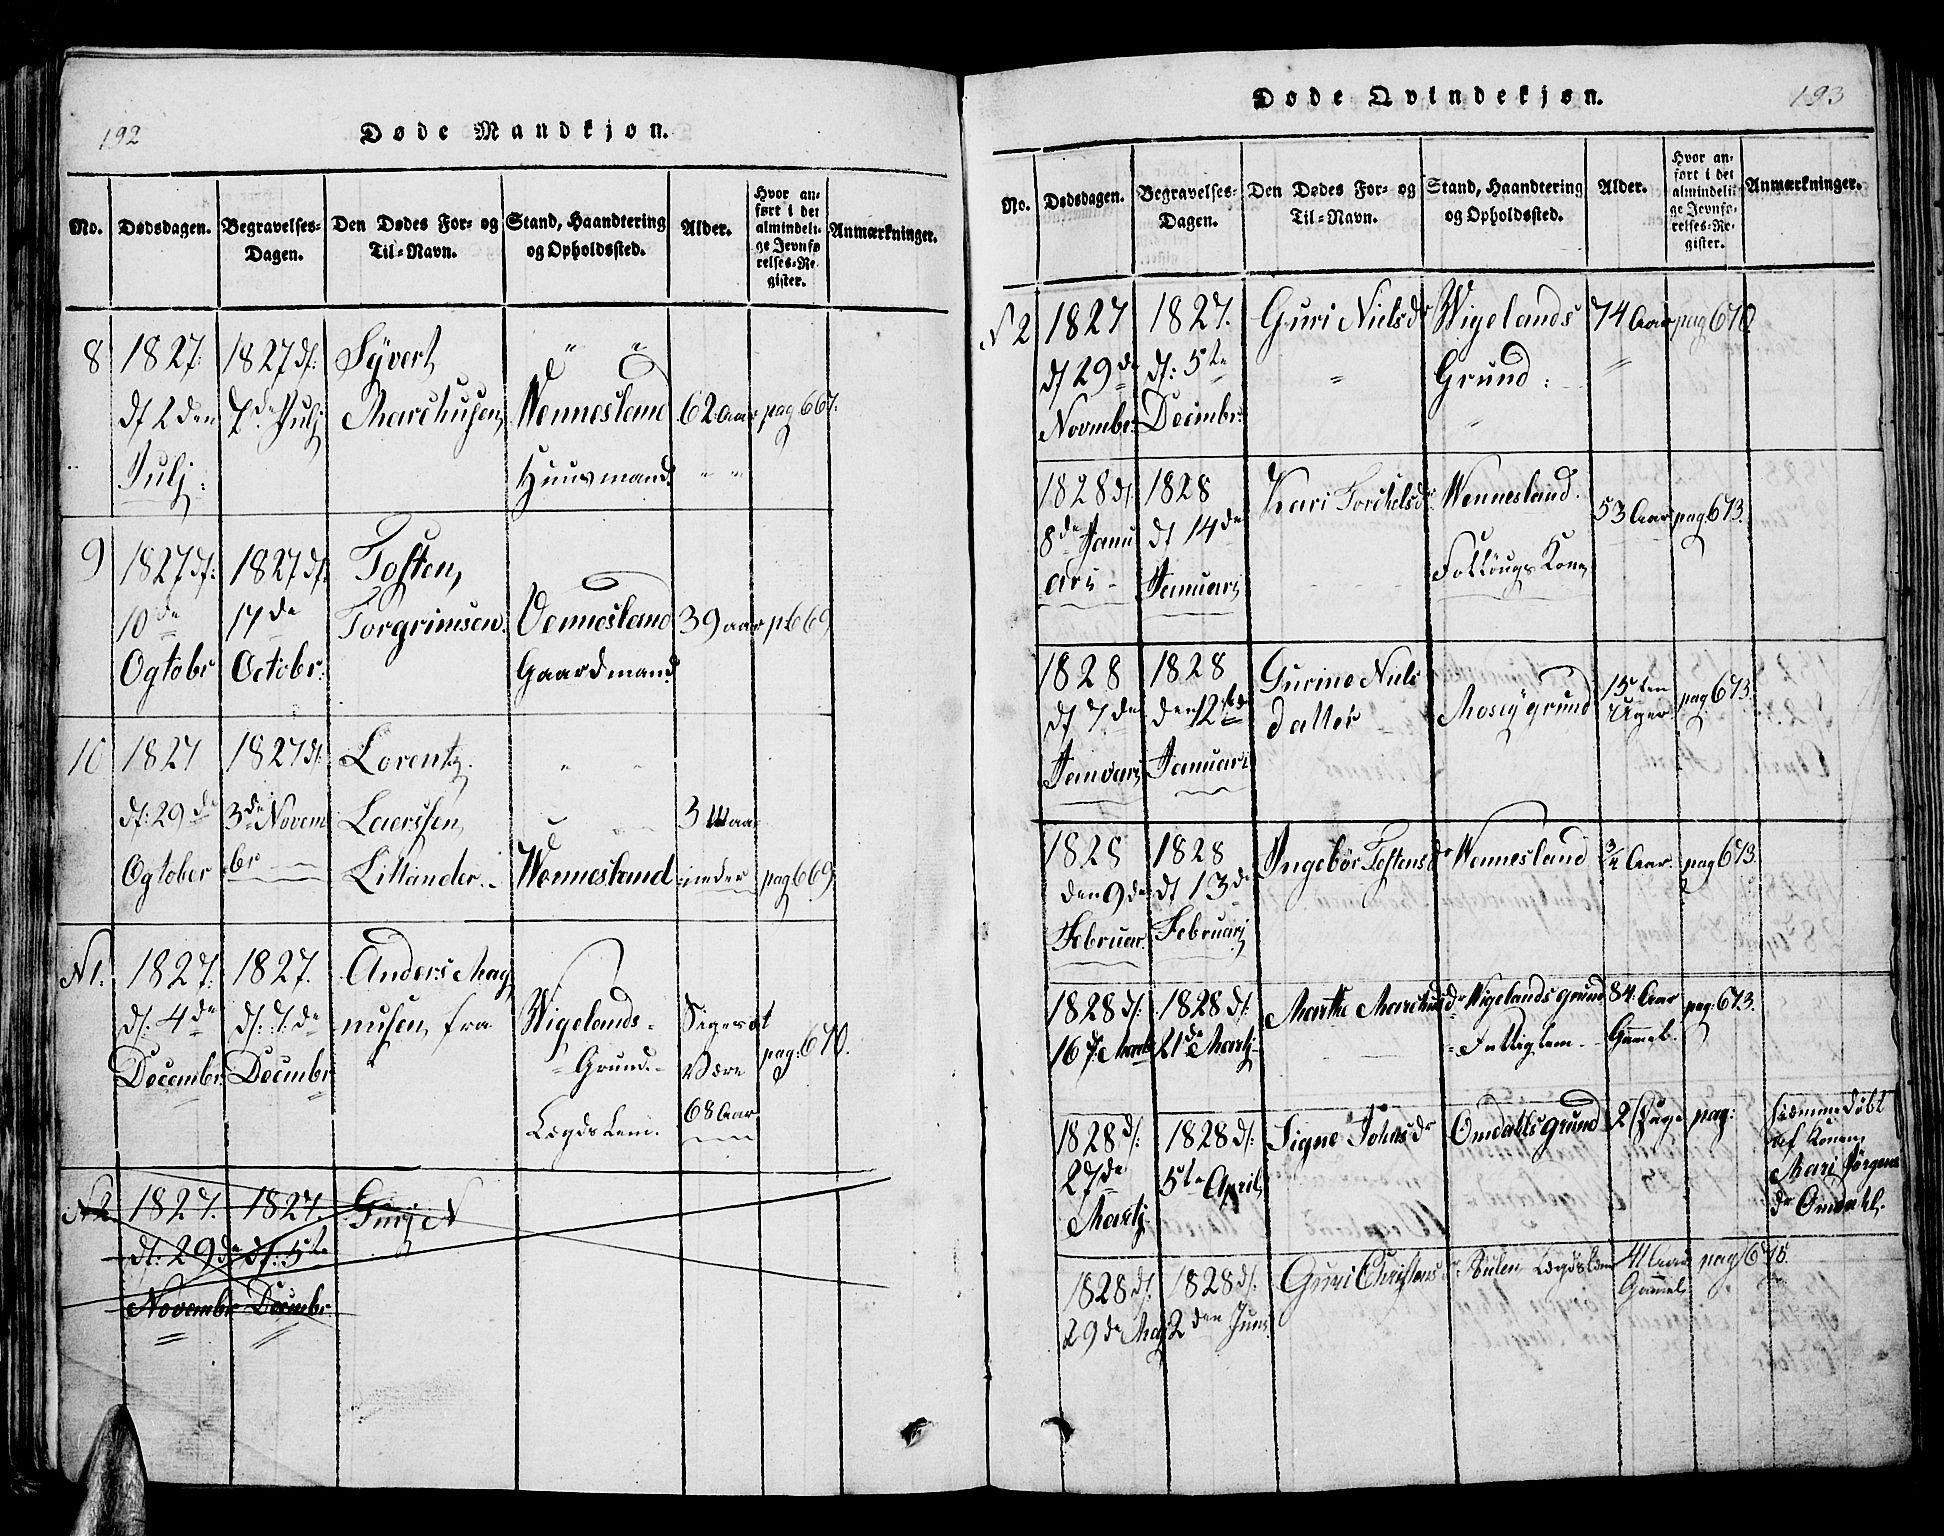 192
Døde Mandkjøn.
No.
Dødsdagen.
Begravelses-
Dagen.
Den Dødes For- og
Til-Navn.
Stand, Haandtering
og Opholdssted.
Alder.
Hvor an-
ført i det
almindeli-
ge Jevnfø-
relses-Re-
gister.
Anmærkninger.
8
1827:
d. 2den
Julj:
1827 d:
7de Julj
Syvert
Marchusen,
" "
Wennesland
Huusmand.
62 aar
" "
pag 667:
9
1827 d:
10de
Ogtobr
1827 d:
17de
Octobr:
Tosten,
Torgrimsen.
Vennesland
Gaardmand
39 aar
p: 669
10
1827
d: 29de
Ogtober
1827 d:
3de Novem
br
Lorentz.
Laerssen,
Littander.
Wennesland
3 Maa
neder
pag 669
N1.
1827.
d. 4de
December
1827.
d: 7de
Decembr
Anders Mag
nusen, fra
Wigelands-
Grund.
Lægds Lem.
Siger at
Være
68 Aar
pag: 670.
N2
1827.
d: 29de
Novembr
1827.
d: 5te
Decembr.
Gurj N
193
Døde Qvindekjøn.
No.
Dødsdagen.
Begravelses-
Dagen.
Den Dødes For- og
Til-Navn.
Stand, Haandtering
og Opholdssted.
Alder.
Hvor an-
ført i det
almindeli-
ge Jevnfø-
relses-Re-
gister.
Anmærkninger.
N 2
1827
d 29de
Novmbr:
1827.
d: 5te
Decmbr:
Guri Nielsdr
"
Wigelands
Grund:
"
74 Aar
"
pag 670
1828 d.
8de Janu
ari
1828
d 14de
Januari
Kari Torchelsdr
Wennesland.
Follougs Kone,
53 Aar
pag 673.
1828
d 7de
Januari
1828
den 12te
Januari
Gurine Niels
datter
Moseygrund
15ten
Uger
pag 673.
1828
den 9de
Februar.
1828
d 13de
Februarj
Ingebor Tostensdr
Wennesland
3/4 Aar.
pag 673.
1828 d:
16de Martj
1828 d:
21de Martj
Marthe Marchusdr
Wigelandsgrund
Fattiglem
84: Aar
Gamel.
pag: 673.
1828 d:
27de
Martj.
1828 d:
5te April
Signe Johnsdr
Omdallsgrund
2 Dage
pag:
hiemmedøbt
af Konen,
Mari Jørgens
dr Omdahl.
1828 d.
29de Maj
1828 d:
2den Juni
Guri Christensdr
Lægdslem
Aar
Gammel
pag 675.